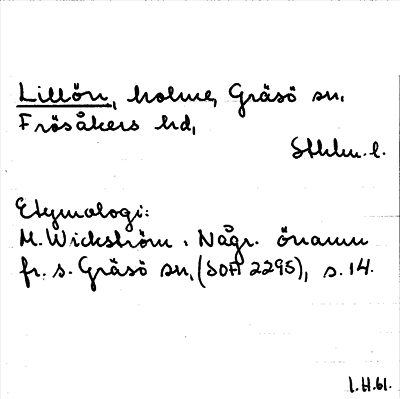 Lillön, holme, Gräsö sn.
Frösåkers hd,
Sthlm. l.
Etymologi:
M. Wickström. Någr. önamn
fr. s. Gräsö sn, (SOFI 2295), s. 14.
I.H.61.